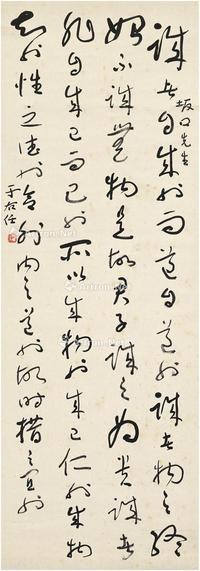 坂口先生
誠者自成也而道自道也誠者物之終
始不誠無物是故君子誠之為貴誠者
非自成己而已也所以成物也成己仁也成物
知也性之德也合外内之道也故時措之宜也
于右任